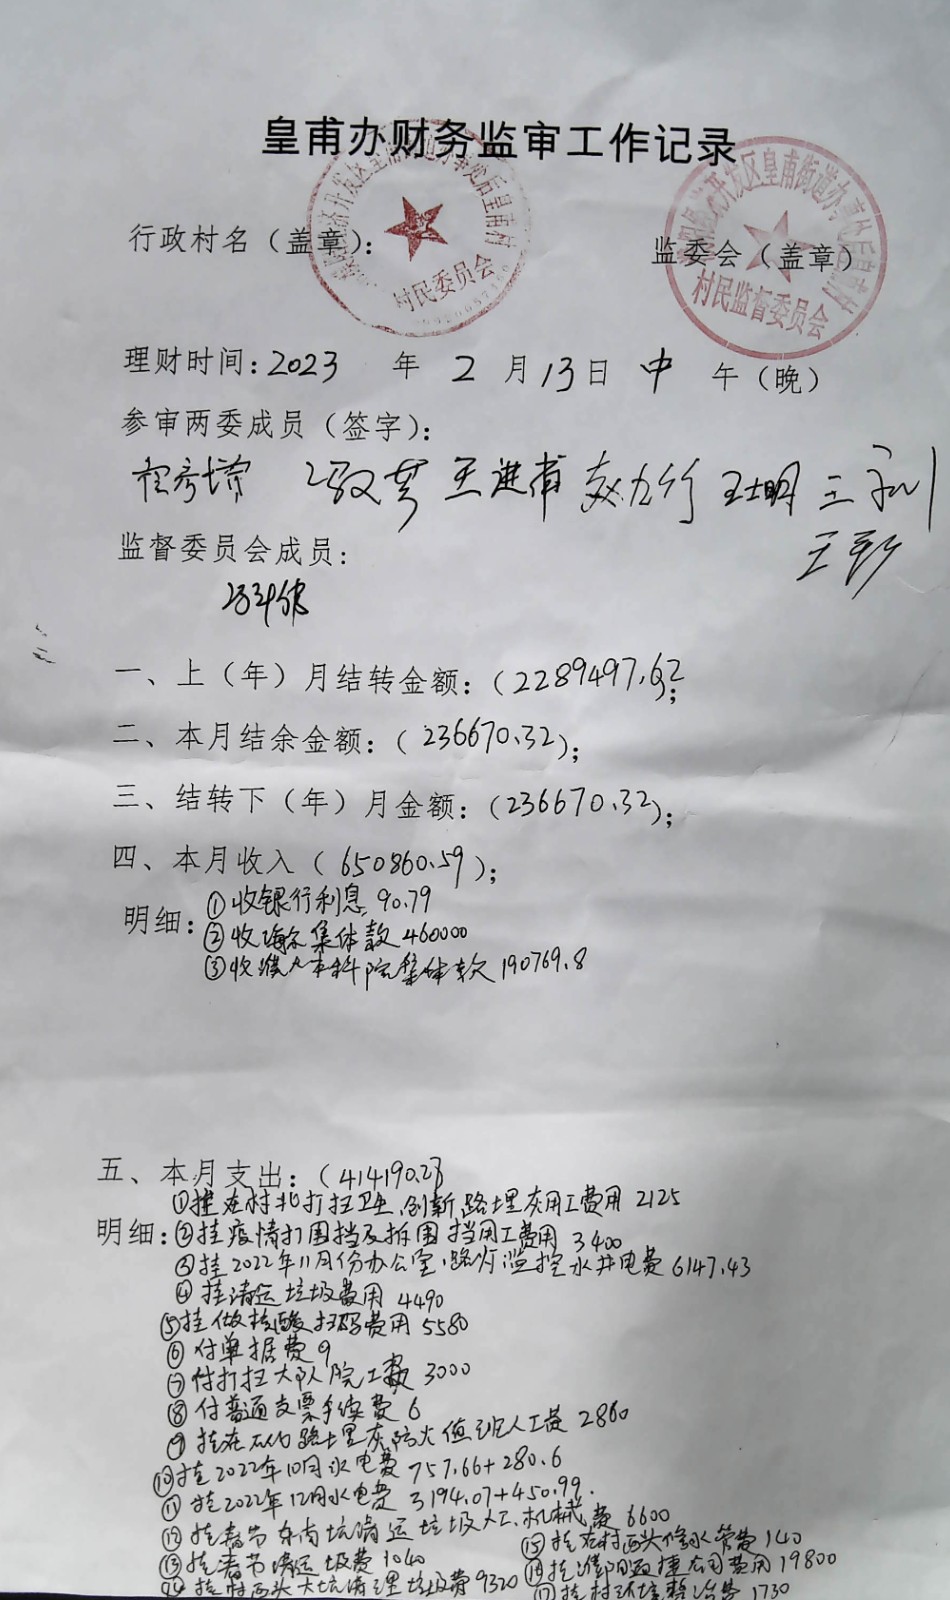 皇甫办财务监审工作记录
行政村名（盖章）：
村民委员会
监委会（盖章）
开发区皇甫街道办事处后皇甫村
村民监督委员会
理财时间：2023 年 2 月 13 日 中 午（晚）
参审两委成员（签字）：
王进甫 王士明 王
王
监督委员会成员：
一、上（年）月结转金额：（2289497.62；
二、本月结余金额：（236670.32）；
三、结转下（年）月金额：（236670.32）；
四、本月收入（650860.59）；
明细：①收银行利息 90.79
②收 集体款 460000
③收濮 本科院集体款 190769.8
五、本月支出：（414190.27
①挂在村北打扫卫生，创新路埋灰用工费用 2125
明细：②挂疫情打围挡及拆围挡用工费用 3400
③挂2022年11月份办公室、路灯监控水井电费 6147.43
④挂清运垃圾费用 4490
⑤挂做核酸扫码费用 5580
⑥付单据费 9
⑦付打扫大队院工资 3000
⑧付普通支票手续费 6
⑨挂在 路埋灰防火值班人工费 2860
⑩挂2022年10月水电费 757.66+280.6
⑪挂2022年12月水电费 3194.07+450.99.
⑫挂春节东南坑清运垃圾人工、机械费 6600
⑬挂春节清运圾费 1040
⑭挂村西头大坑清理垃圾费 9320
⑮挂在村西头修水管费 140
⑯挂濮阳 捷公司费用 19800
⑰挂村环境整治费 1730